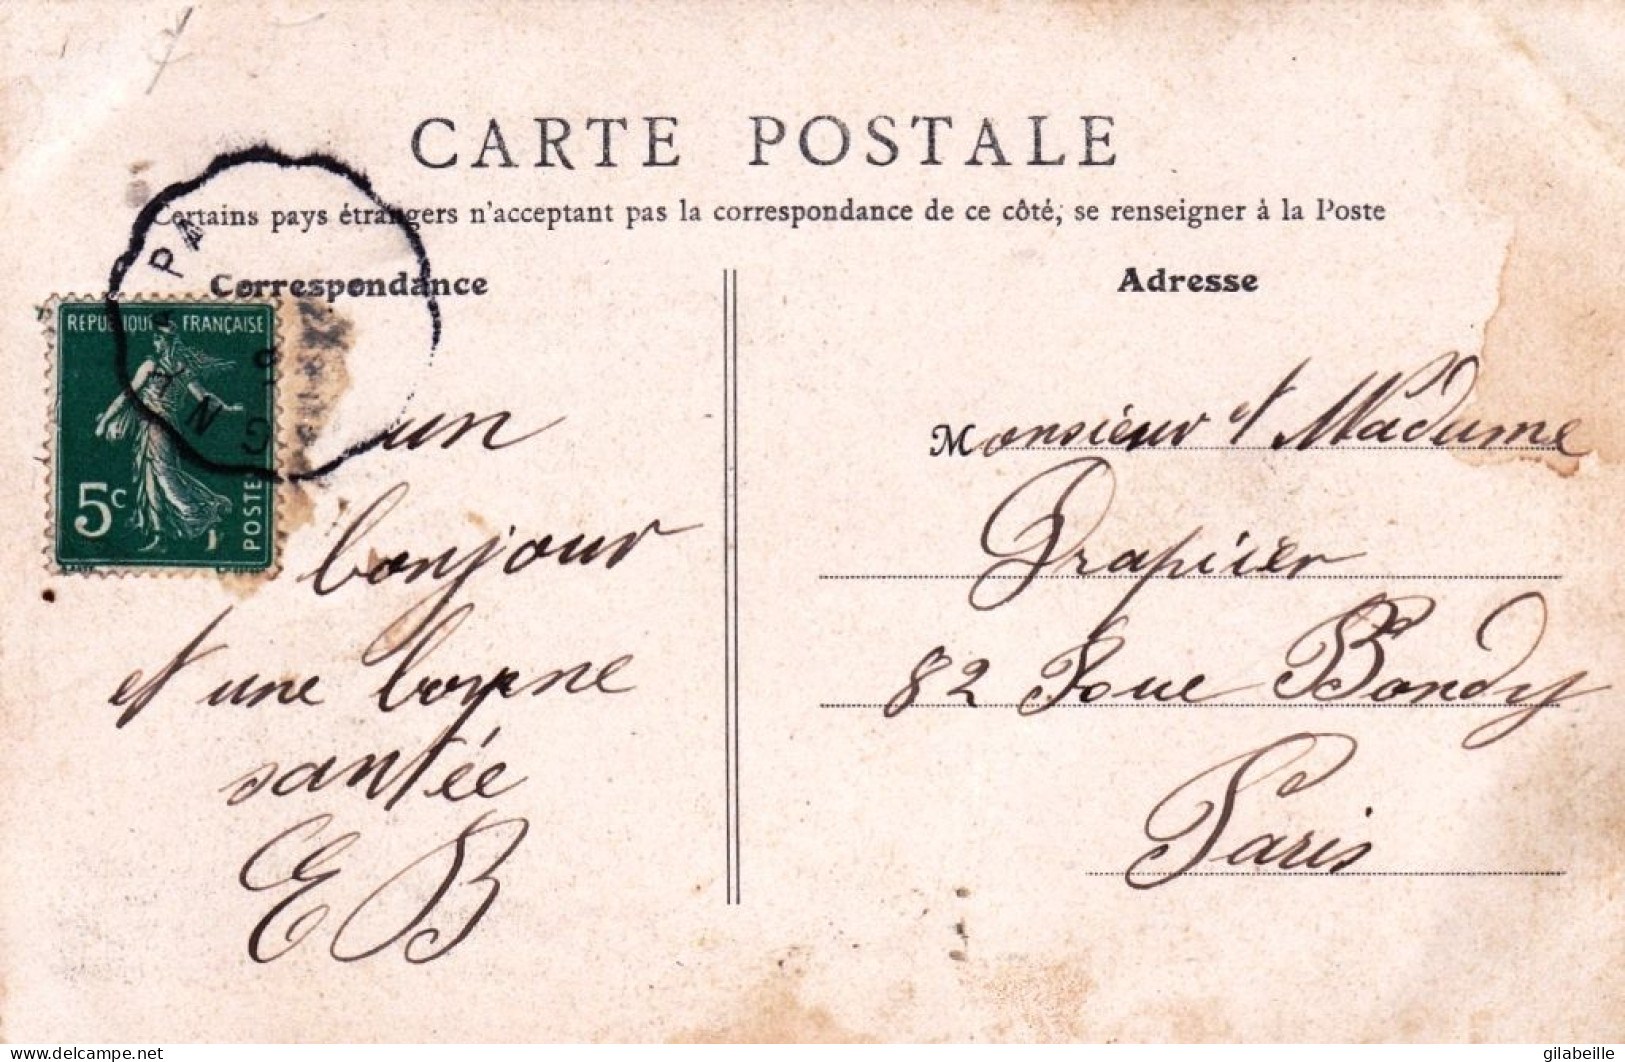 CARTE POSTALE
Certains pays étrangers n'acceptant pas la correspondance de ce côté, se renseigner à la Poste
Correspondance
Adresse
REPUBLIQUE FRANÇAISE
5c
POSTES
PA
un
bonjour
et une bonne
santée
EB
Monsieur et Madame
Drapier
82 Rue Bondy
Paris
delcampe.net
gilabeille